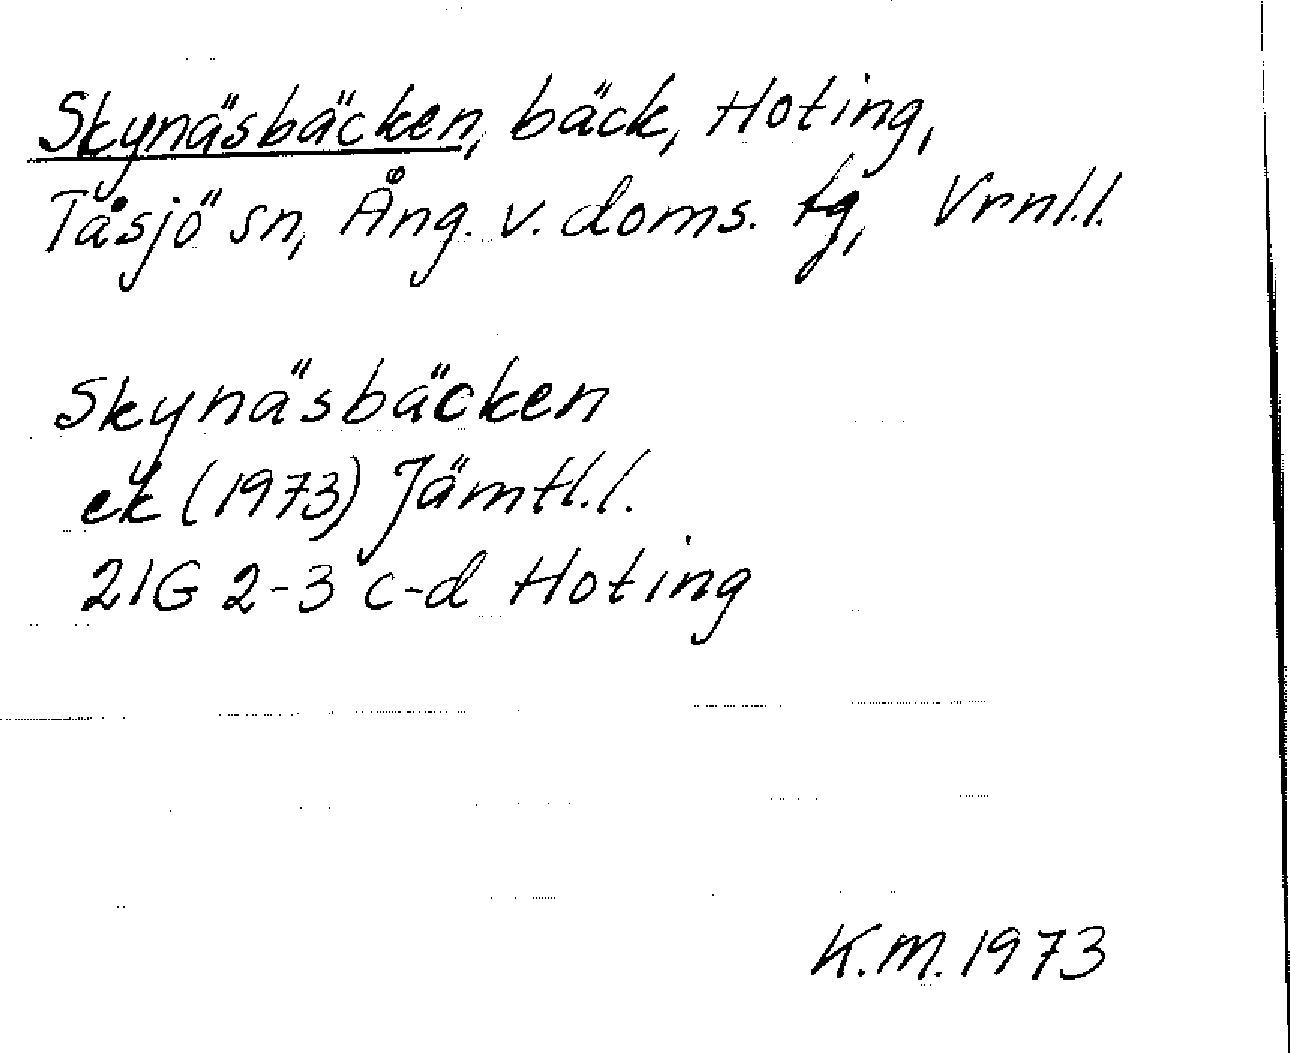 Skynäsbäcken, bäck, Hoting,
Tåsjö sn, Ång. v. doms. tg, Vrnl.l.
Skynäsbäcken
ek (1973) Jämtl.l.
21G 2-3 c-d Hoting
K.M. 1973